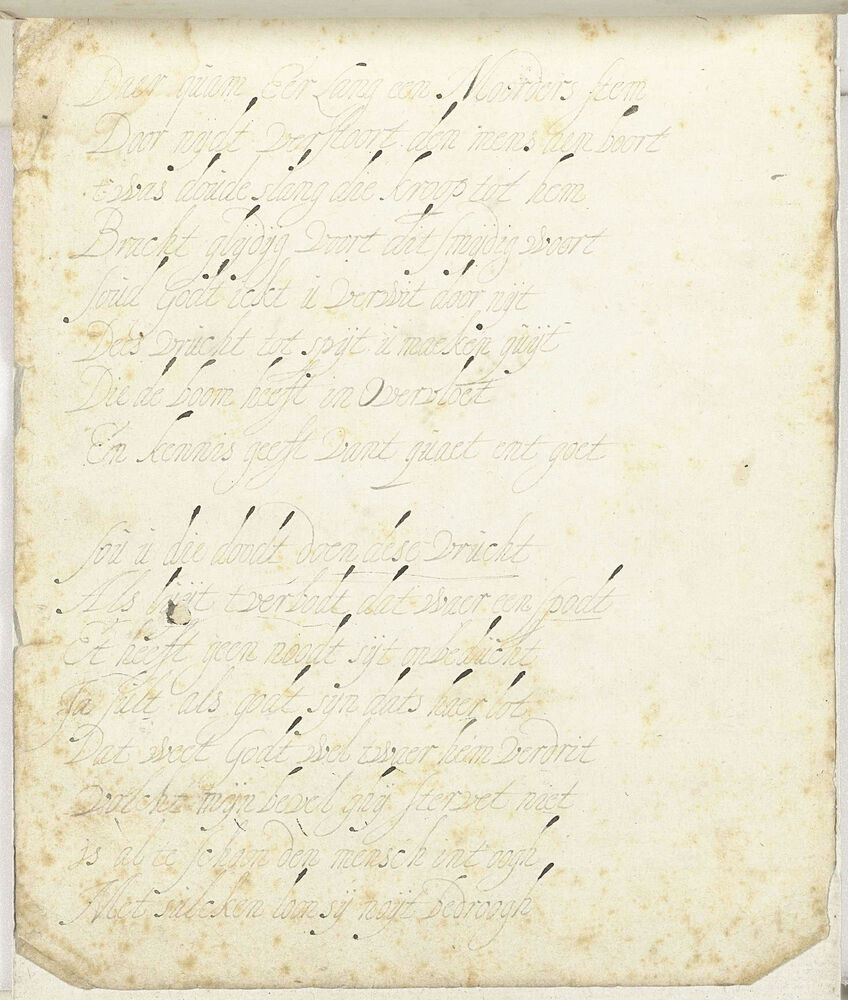 Daer quam Eer Lang een Moorders stem
Door nydt verstoort den mens aen boort
twas doude slang die kroop tot hem
Bracht glydig voort dit smydig woort
soud Godt u verwit door nyt
Dees vrucht tot spyt u maeken quyt
Die de boom heeft in Overvloet
En kennis geeft vant quaet ent goet
sou u die doodt doen dese vrucht
Als t verbodt dat waer een spodt
Et heeft geen noodt syt onbeducht
Ja sult als godt syn dats haer lot
Dat weet Godt wel twaer hem verdrit
mijn bevel ghy stervet niet
is al te schoon den mensch int oogh
Met sulcken loon sy noyt bedroogh